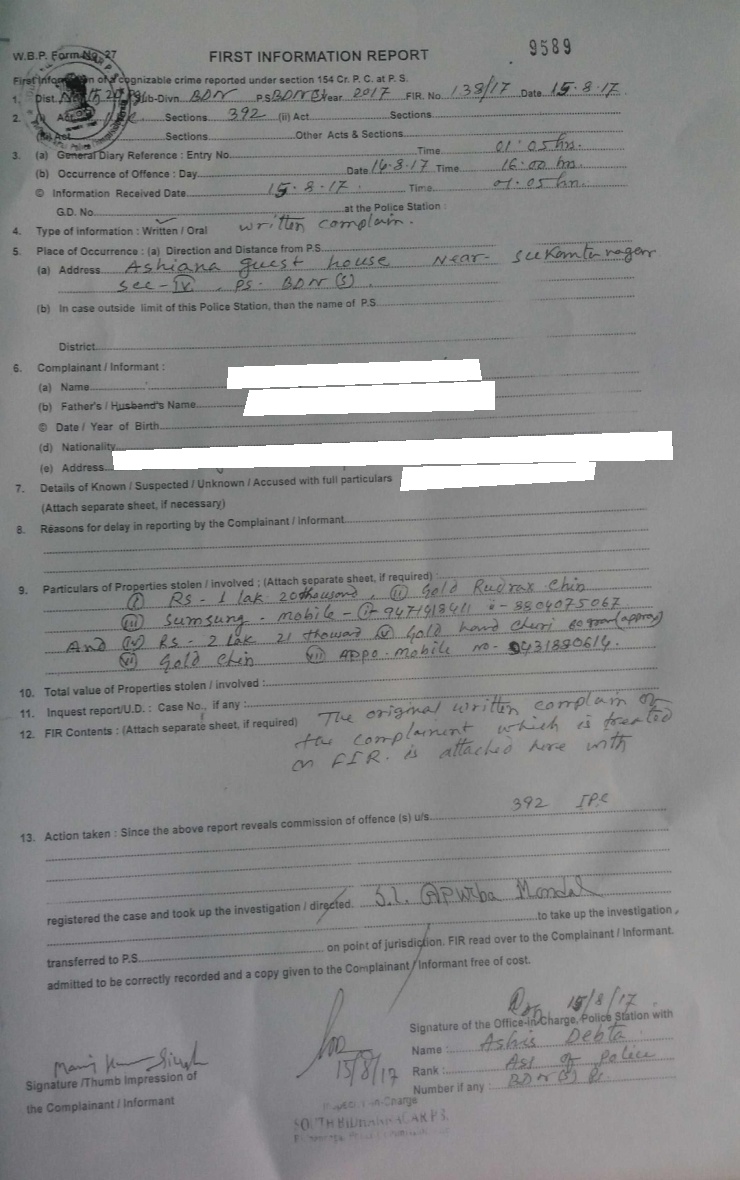 9589
W.B.P. Form No. 27
FIRST INFORMATION REPORT
First Information of a cognizable crime reported under section 154 Cr. P. C. at P. S.
1. Dist. North 24 Sub-Divn. BDN P.S. BDN(S) Year 2017 FIR. No. 138/17 Date 15.8.17.
2. (i) Act Sections 392 (ii) Act Sections
(iii) Act Sections Other Acts & Sections
3. (a) General Diary Reference : Entry No. Time 01:05 hrs.
(b) Occurrence of Offence : Day Date 14.8.17 Time 16:00 hrs
© Information Received Date 15.8.17. Time. 01.05 hrs.
G.D. No. at the Police Station :
4. Type of information : Written / Oral written complain.
5. Place of Occurrence : (a) Direction and Distance from P.S.
(a) Address Ashiana guest house Near-
Sec-IV, PS. BDN(S).
(b) In case outside limit of this Police Station, then the name of P.S.
District
6. Complainant / Informant :
(a) Name
(b) Father's / Husband's Name
© Date / Year of Birth
(d) Nationality
(e) Address
7. Details of Known / Suspected / Unknown / Accused with full particulars
(Attach separate sheet, if necessary)
8. Reasons for delay in reporting by the Complainant / Informant
9. Particulars of Properties stolen / involved : (Attach separate sheet, if required)
(i) RS - 1 lak 20 thousand, (ii) Gold Rudrax Chin
(iii) Sumsung - mobile -
And (iv) RS - 2 lak 21 (v) Gold hand (approx)
(vi) Gold Chin (vii) APPO - Mobile no- 9431880614.
10. Total value of Properties stolen / involved :
11. Inquest report/U.D. : Case No., if any :
12. FIR Contents : (Attach separate sheet, if required) The original written complain of
the complainent which is treated
as FIR. is attached here with
13. Action taken : Since the above report reveals commission of offence (s) u/s. 392 IPC
registered the case and took up the investigation / directed. S.I. Apurba Mondal
to take up the investigation,
transferred to P.S. on point of jurisdiction. FIR read over to the Complainant / Informant.
admitted to be correctly recorded and a copy given to the Complainant / Informant free of cost.
15/8/17.
Signature of the Office-in/Charge, Police Station with
Name : Ashis Debta
Rank : ASI of Police
Number if any : BDN(S) PS
15/8/17
Signature /Thumb Impression of
the Complainant / Informant
In-Charge